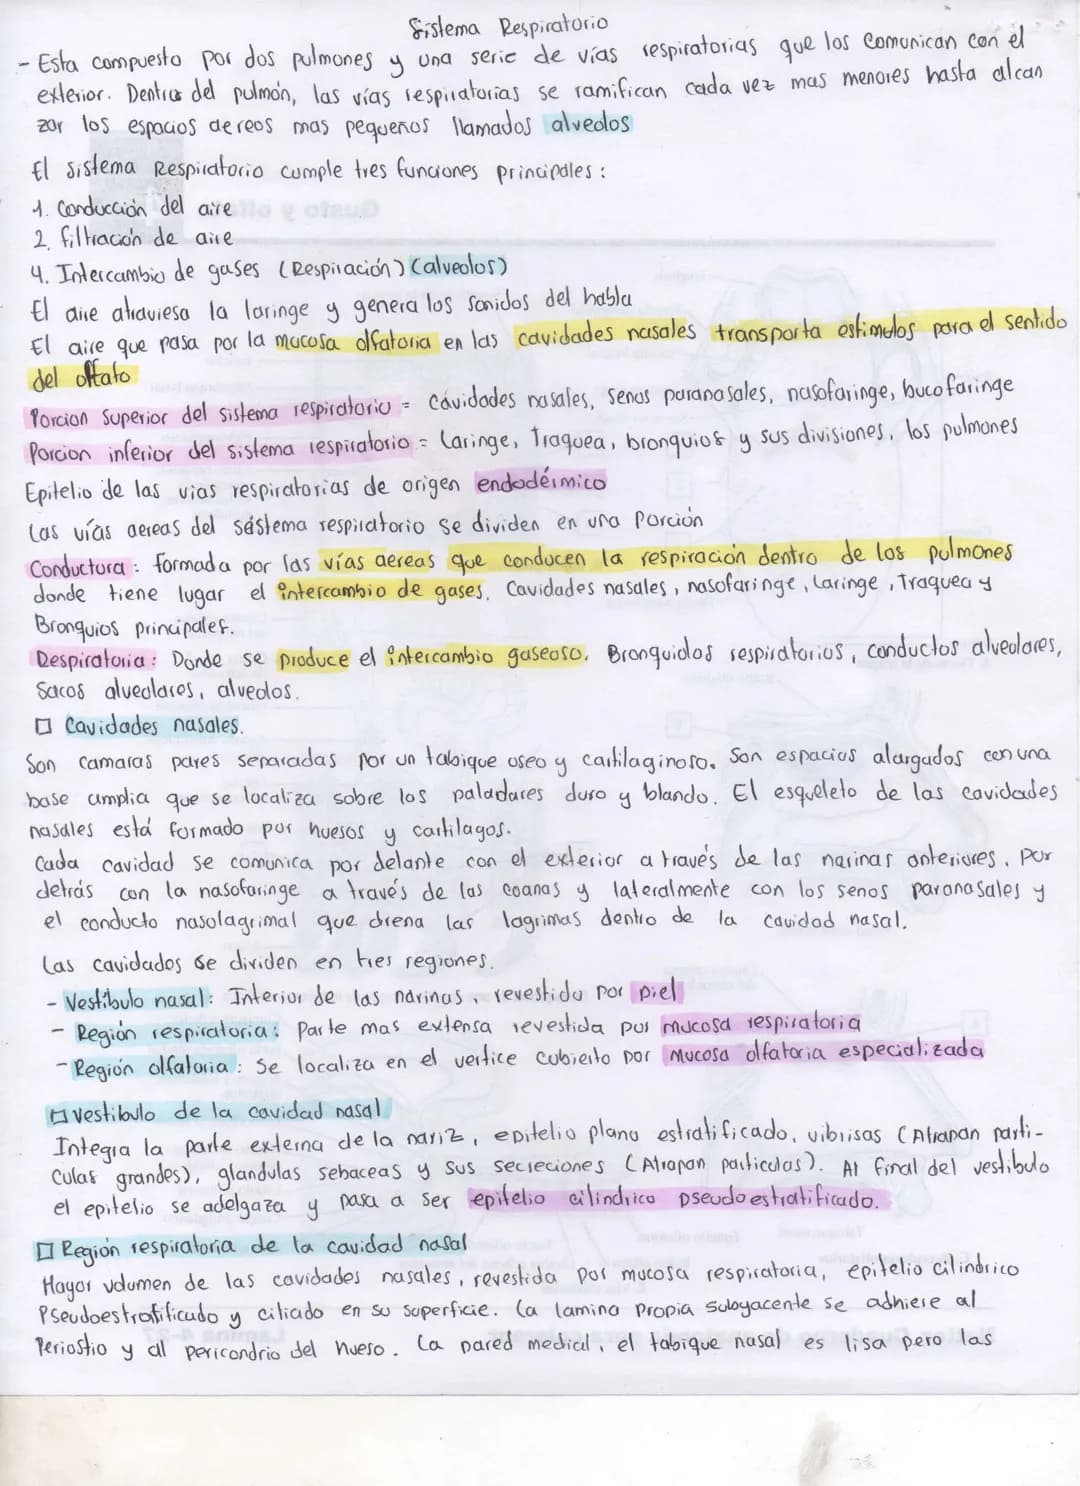 Sistema Respiratorio
- Esta compuesto por dos pulmones y una serie de vías respiratorias que los comunican con el
exterior. Dentro del pulmón, las vías respiratorias se ramifican cada vez mas menores hasta alcan
zar los espacios aereos mas pequeños llamados alveolos
El Sistema Respiratorio cumple tres funciones principales:
1. Conducción del aire
2. filtración de aire
4. Intercambio de gases (Respiración) (alveolos)
El aire atraviesa la laringe y genera los sonidos del habla
El aire que pasa por la mucosa olfatoria en las cavidades nasales transporta estimulos para el sentido
del olfato
Porcion Superior del sistema respiratorio = Cavidades nasales, senos paranasales, nasofaringe, bucofaringe
Porcion inferior del sistema respiratorio = Laringe, Traquea, bronquios y sus divisiones, los pulmones
Epitelio de las vias respiratorias de origen endodérmico
Las vías aereas del sistema respiratorio se dividen en una Porción
Conductora: formada por las vías aereas que conducen la respiración dentro de los pulmones
donde tiene lugar el intercambio de gases. Cavidades nasales, nasofaringe, Laringe, Traquea y
Bronquios principales.
Respiratoria: Donde se produce el intercambio gaseoso. Bronquiolos respiratorios, conductos alveolares,
Sacos alveolares, alveolos.
□ Cavidades nasales.
Son camaras pares separadas por un tabique oseo y cartilaginoso. Son espacios alargados con una
base amplia que se localiza sobre los paladares duro y blando. El esqueleto de las cavidades
nasales está formado por huesos y cartilagos.
Cada cavidad se comunica por delante con el exterior a través de las narinas anteriores, por
detrás con la nasofaringe a través de las coanas y lateralmente con los senos paranasales y
el conducto nasolagrimal que drena las lagrimas dentro de la cavidad nasal.
Las cavidades se dividen en tres regiones.
- Vestíbulo nasal: Interior de las narinas, revestido por piel
- Región respiratoria: Parte mas extensa revestida por mucosa respiratoria
- Región olfatoria: Se localiza en el vertice cubierto por mucosa olfatoria especializada
□ Vestibulo de la cavidad nasal
Integra la parte externa de la nariz, epitelio plano estratificado, vibrisas (Atrapan parti-
culas grandes), glandulas sebaceas y sus secreciones (Atrapan particulas). Al final del vestibulo
el epitelio se adelgaza y pasa a ser epitelio cilindrico pseudoestratificado.
□ Región respiratoria de la cavidad nasal
Mayor volumen de las cavidades nasales, revestida por mucosa respiratoria, epitelio cilindrico
Pseudoestratificado y ciliado en su superficie. La lamina propia subyacente se adhiere al
Periostio y al pericondrio del hueso. La pared medial, el tabique nasal es lisa pero las